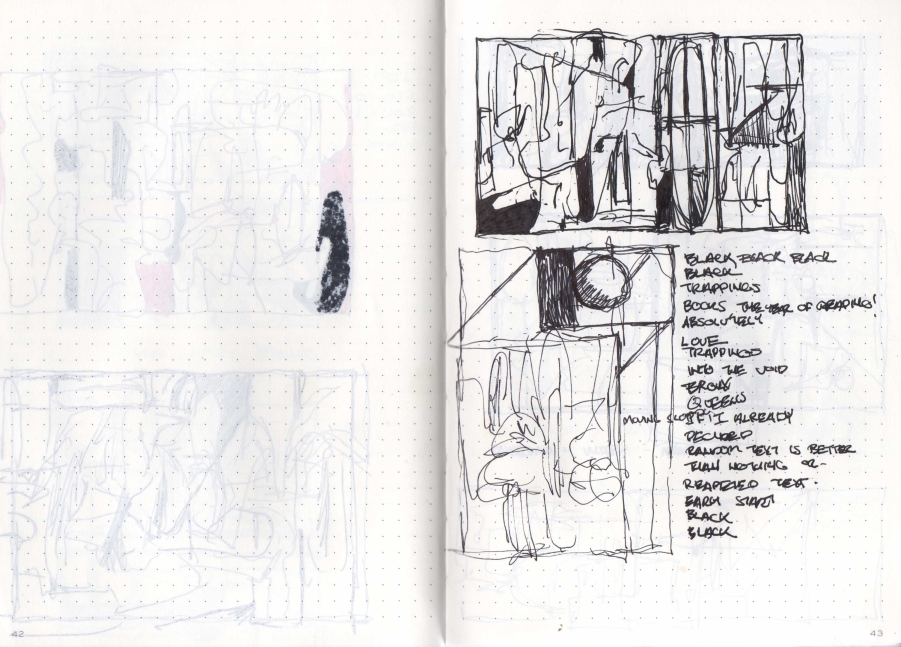 BLACK BLACK BLACK
BLACK
TRAPPINGS
BOOKS THE YEAR OF READING!
ABSOLUTELY
LOVE
TRAPPINGS
INTO THE VOID
BRONX
QUEENS
I ALREADY
DECIDED
RANDOM TEXT IS BETTER
THAN NOTHING OR
REAPEATED TEXT.
EARLY START
BLACK
BLACK
42
43